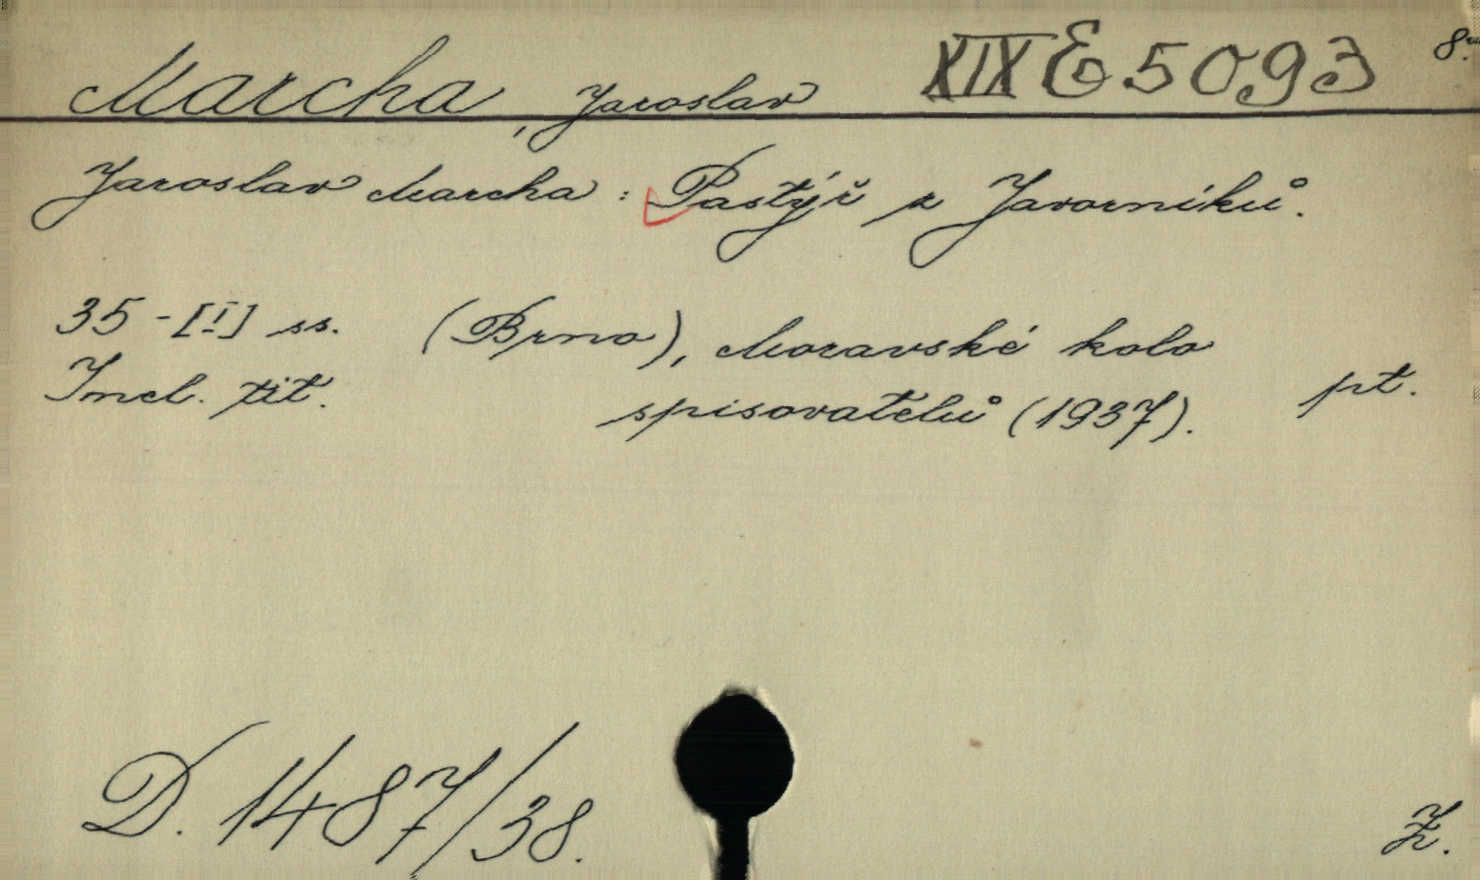 Marcha, Jaroslav XIX E 5093 8°
Jaroslav Marcha: Pastýř z Javorníků.
35-[I] ss. (Brno), Moravské kolo
Incl. tit. spisovatelů (1937). pt.
D. 1487/38.
Ž.